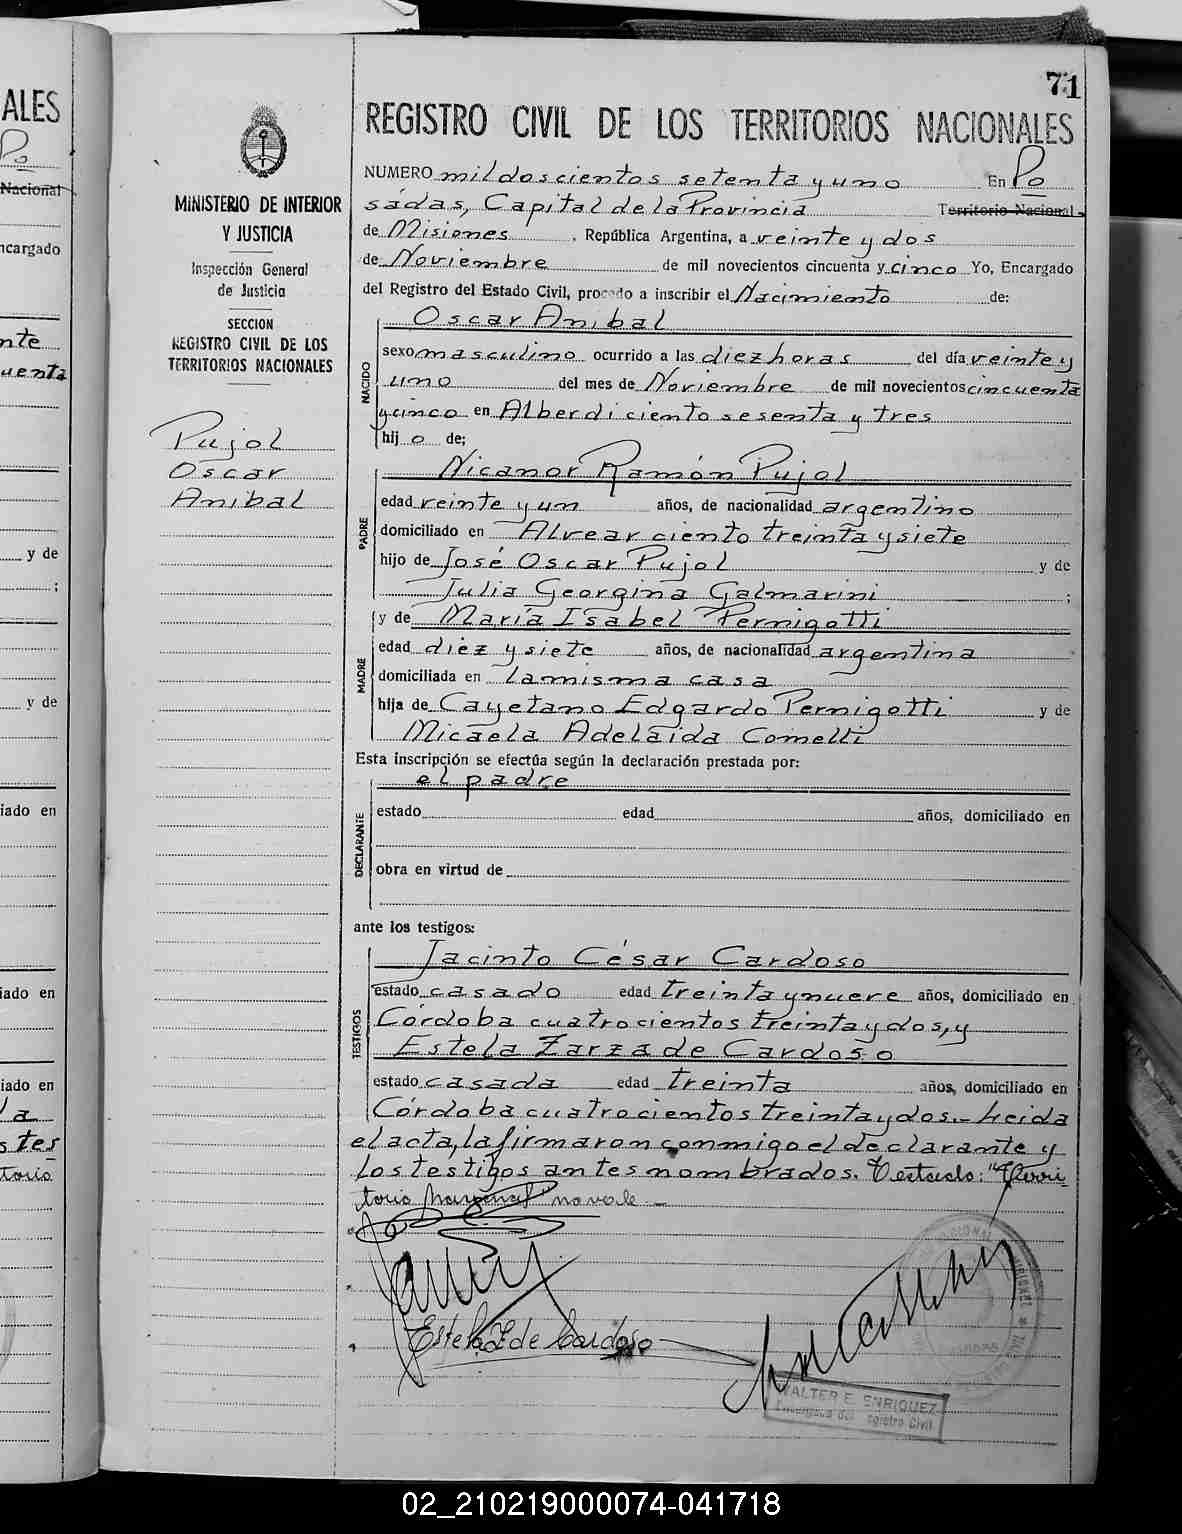 71
ALES
REGISTRO CIVIL DE LOS TERRITORIOS NACIONALES
Po
Nacional
NUMERO mil doscientos setenta y uno En Po
MINISTERIO DE INTERIOR
Y JUSTICIA
sádas, Capital de la Provincia Territorio Nacional
de Misiones, República Argentina, a veinte y dos
ncargado
Inspección General
de Justicia
de Noviembre de mil novecientos cincuenta y cinco Yo, Encargado
del Registro del Estado Civil, procedo a inscribir el Nacimiento de:
SECCION
REGISTRO CIVIL DE LOS
TERRITORIOS NACIONALES
NACIDO
Oscar Anibal
nte
sexo masculino ocurrido a las diez horas del día veinte y
uenta
uno del mes de Noviembre de mil novecientos cincuenta
y cinco en Alberdi ciento sesenta y tres
hij o de;
Pujol
Oscar
Anibal
PADRE
Nicanor Ramón Pujol
edad veinte y un años, de nacionalidad argentino
domiciliado en Alvear ciento treinta y siete
y de
hijo de José Oscar Pujol y de
;
Julia Georgina Galmarini ;
y de María Isabel Pernigotti
MADRE
edad diez y siete años, de nacionalidad argentina
domiciliada en la misma casa
y de
hija de Cayetano Edgardo Pernigotti y de
Micaela Adelaida Comelli
Esta inscripción se efectúa según la declaración prestada por:
el padre
DECLARANTE
iado en
estado edad años, domiciliado en
obra en virtud de
ante los testigos:
TESTIGOS
Jacinto César Cardoso
iado en
estado casado edad treinta y nueve años, domiciliado en
Córdoba cuatrocientos treinta y dos, y
Estela Zarza de Cardoso
iado en
estado casada edad treinta años, domiciliado en
la
Córdoba cuatrocientos treinta y dos.- Leida
s tes
el acta, la firmaron conmigo el declarante y
torio
los testigos antes nombrados. Testado: "Terri
torio Nacional" no vale -
Estela Z de Cardoso
WALTER E. ENRIQUEZ
Encargado del Registro Civil
02_210219000074-041718